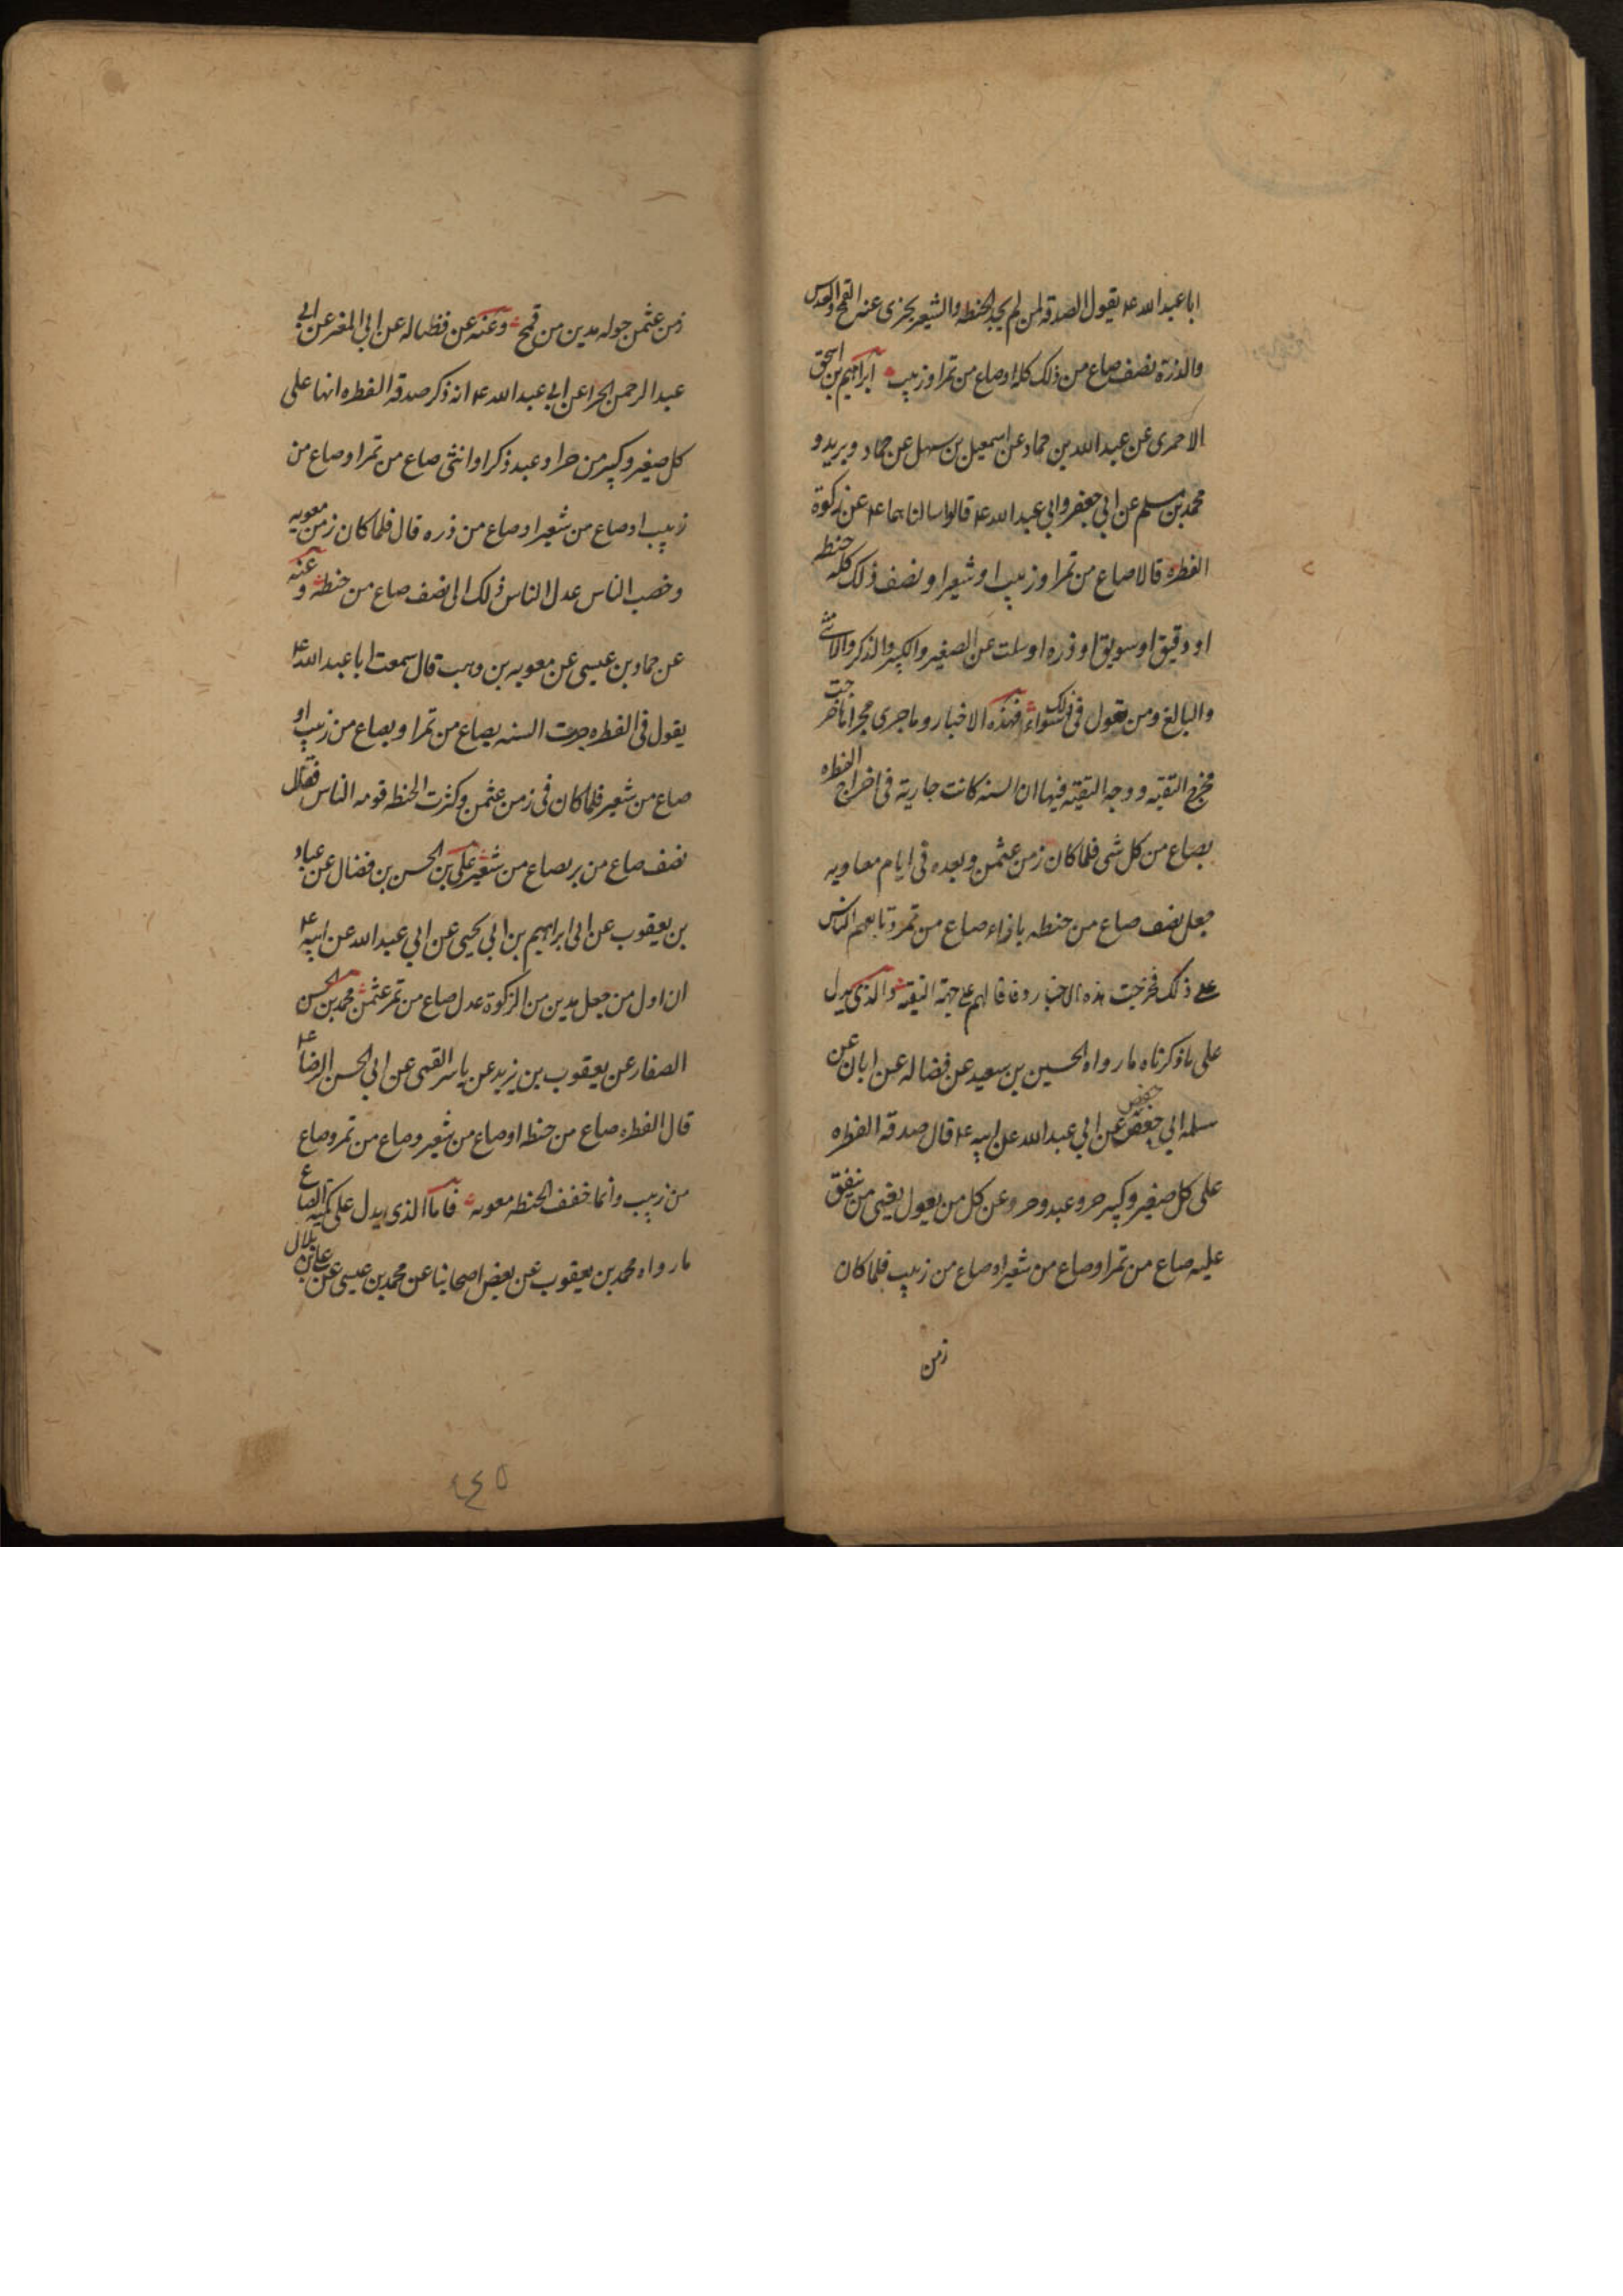 ابا عبد الله ع يقول الصدقة لمن لم يجد الحنطه والشعير يجزى عنه القمح والعدس
والذرة نصف صاع من ذلك كله اوصاع من تمر او زبيب ابراهيم بن اسحق
الاحمرى عن عبد الله بن حماد عن اسمعيل بن سهل عن حماد وبريد و
محمد بن مسلم عن ابي جعفر وابي عبد الله ع قالوا سالناهما ع عن زكوة
الفطره قالا صاع من تمر او زبيب او شعير او نصف ذلك كله حنطه
او دقيق او سويق او ذره او سلت عن الصغير والكبير والذكر والانثى
والبالغ ومن تعول في ذلك سواء فهذه الاخبار وما جرى مجراها خرجت
مخرج التقيه ووجه التقية فيها ان السنه كانت جارية في اخراج الفطره
بصاع من كل شى فلما كان زمن عثمن وبعده في ايام معاويه
جعل نصف صاع من حنطه بازاء صاع من تمر وتابعهم الناس
على ذلك فخرجت هذه الاخبار وفاقا لهم على جهة التقيه والذى يدل
على ما ذكرناه ما رواه الحسين بن سعيد عن فضاله عن ابان عن
سلمه ابي حفص عن ابي عبد الله عن ابيه ع قال صدقه الفطره
حفص
على كل صغير وكبير حر وعبد وحر وعن كل من يعول يعنى من ينفق
عليه صاع من تمر اوصاع من شعير اوصاع من زبيب فلما كان
زمن
زمن عثمن حوله مدين من قمح وعنه عن فضاله عن ابي المغر عن ابي
عبد الرحمن الحذا عن ابي عبد الله ع انه ذكر صدقه الفطره انها على
كل صغير وكبير من حر او عبد ذكر او انثى صاع من تمر اوصاع من
زبيب اوصاع من شعير اوصاع من ذره قال فلما كان زمن معويه
وخصب الناس عدل الناس ذلك الى نصف صاع من حنطه وعنه
عن حماد بن عيسى عن معويه بن وهب قال سمعت ابا عبد الله ع
يقول في الفطره جرت السنه بصاع من تمر او بصاع من زبيب او
صاع من شعير فلما كان في زمن عثمن وكثرت الحنطه قومه الناس فقال
نصف صاع من بر بصاع من شعير على بن الحسن بن فضال عن عباد
بن يعقوب عن ابراهيم بن ابي يحيى عن ابي عبد الله عن ابيه ع
ان اول من جعل مدين من الزكوة عدل صاع من تمر عثمن محمد بن الحسن
الصفار عن يعقوب بن يزيد عن ياسر القمى عن ابي الحسن الرضا ع
قال الفطره صاع من حنطه اوصاع من شعير وصاع من تمر وصاع
من زبيب وانما خفف الحنطه معويه فاما الذى يدل على كميه الصاع
ما رواه محمد بن يعقوب عن بعض اصحابنا عن محمد بن عيسى عن على بن بلال